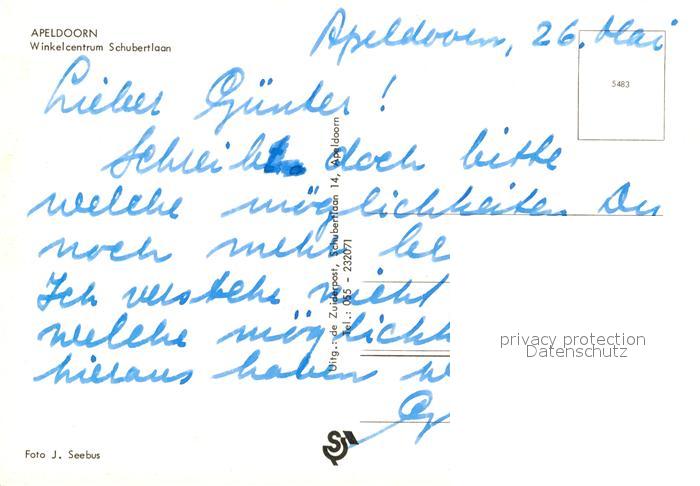 APELDOORN
Winkelcentrum Schubertlaan
Apeldoorn, 26. Mai
5483
Lieber Günter !
Schreib doch bitte
welche möglichkeiten Du
noch mehr
Ich verstehe nicht
welche möglichk
hieraus haben
Uitg.: de Zuiderpost, Schubertlaan 14, Apeldoorn
Tel.: 055 - 232071
privacy protection
Datenschutz
Foto J. Seebus